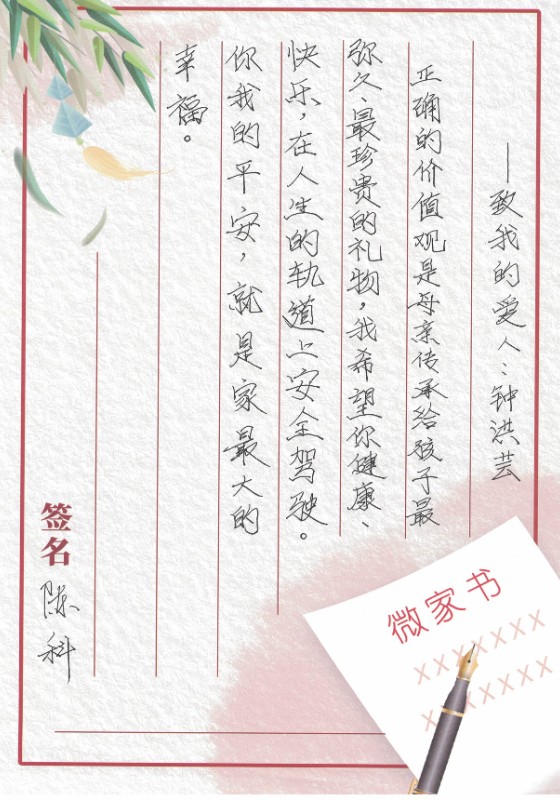 ——致我的爱人：钟洪芸
正确的价值观是母亲传承给孩子最
弥久、最珍贵的礼物，我希望你健康、
快乐，在人生的轨道上安全驾驶。
你我的平安，就是家最大的
幸福。
签名 陈科
微家书
XXXXXXX
XXXXXXX